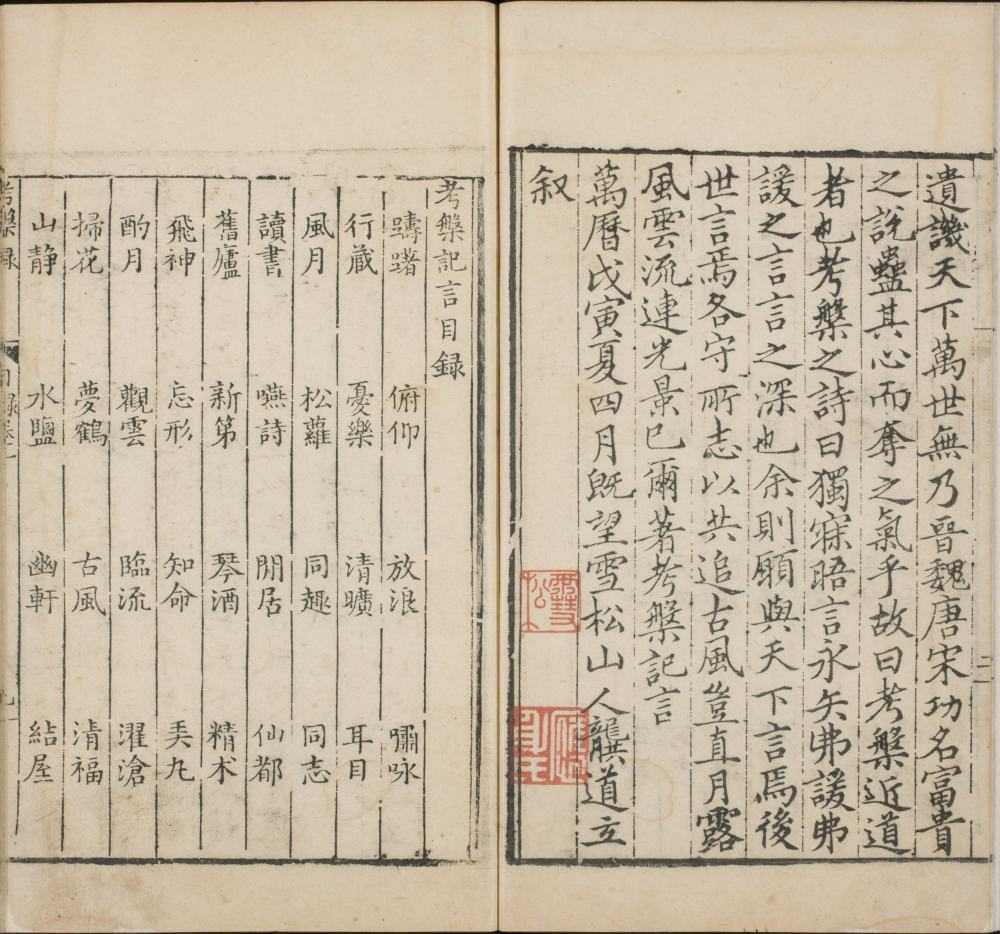 遺譏天下萬世無乃晉魏唐宋功名富貴
之説蠱其心而奪之氣乎故曰考槃近道
者也考槃之詩曰獨寐晤言永矢弗諼弗
諼之言言之深也余則願與天下言焉後
世言焉各守所志以共追古風豈直月露
風雲流連光景已爾著考槃記言
萬曆戊寅夏四月既望雪松山人龔道立
叙
考槃記言目録
躊躇 俯仰 放浪 嘯咏
行藏 憂樂 清曠 耳目
風月 松蘿 同趣 同志
讀書 嚥詩 閒居 仙都
舊廬 新第 琴酒 精术
飛神 忘形 知命 美九
酌月 觀雲 臨流 濯滄
掃花 夢鶴 古風 清福
山静 水鹽 幽軒 結屋
考槃録 目録